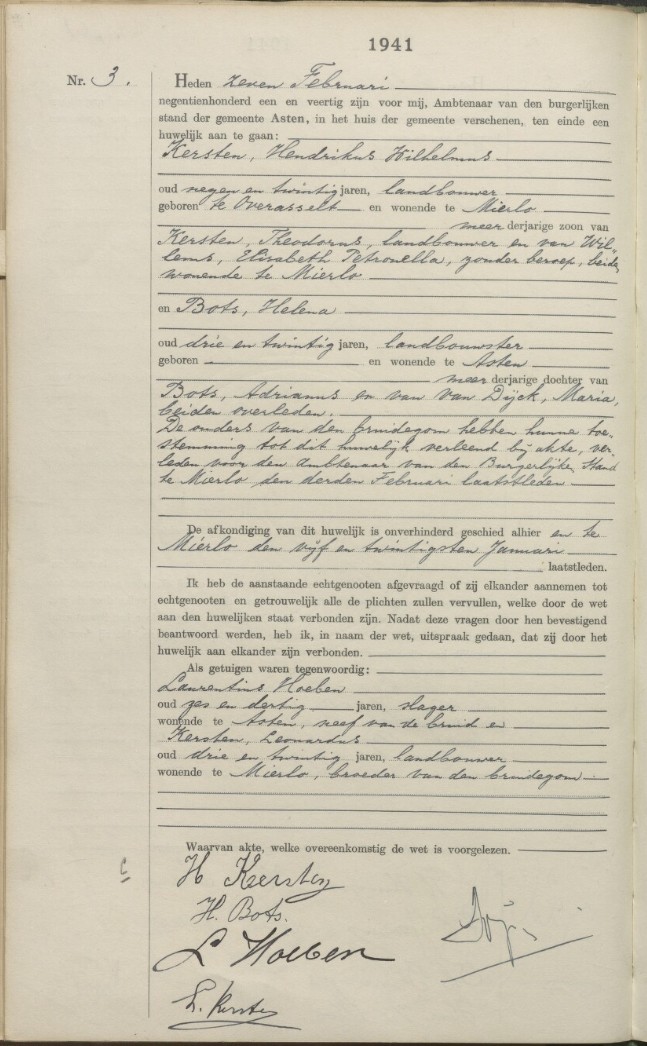 1941
Nr. 3.
Heden zeven Februari
negentienhonderd een en veertig zijn voor mij, Ambtenaar van den burgerlijken
stand der gemeente Asten, in het huis der gemeente verschenen, ten einde een
huwelijk aan te gaan:
Kersten, Hendrikus Wilhelmus
oud negen en twintig jaren, landbouwer
geboren te Overasselt en wonende te Mierlo
meer derjarige zoon van
Kersten, Theodorus, landbouwer en van Wil"
lems, Elisabeth Petronella, zonder beroep, beide
wonende te Mierlo
en Bots, Helena
oud drie en twintig jaren, landbouwster
geboren en wonende te Asten
meer derjarige dochter van
Bots, Adrianus en van van Dijck, Maria,
beiden overleden.
De ouders van den bruidegom hebben hunne toe-
stemming tot dit huwelijk verleend bij akte, ver-
leden voor den Ambtenaar van den Burgerlijke Stand
te Mierlo den derden Februari laatstleden
De afkondiging van dit huwelijk is onverhinderd geschied alhier en te
Mierlo den vijf en twintigsten Januari
laatstleden.
Ik heb de aanstaande echtgenooten afgevraagd of zij elkander aannemen tot
echtgenooten en getrouwelijk alle de plichten zullen vervullen, welke door de wet
aan den huwelijken staat verbonden zijn. Nadat deze vragen door hen bevestigend
beantwoord werden, heb ik, in naam der wet, uitspraak gedaan, dat zij door het
huwelijk aan elkander zijn verbonden.
Als getuigen waren tegenwoordig:
Laurentius Hoeben
oud zes en dertig jaren, slager
wonende te Asten, neef van de bruid en
Kersten, Leonardus
oud drie en twintig jaren, landbouwer
wonende te Mierlo, broeder van den bruidegom
Waarvan akte, welke overeenkomstig de wet is voorgelezen.
H Kersten
H. Bots.
L Hoeben
L. Kersten